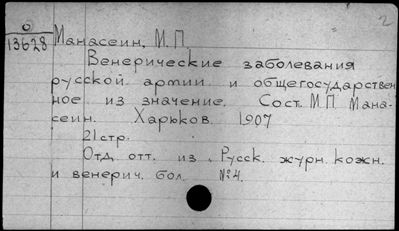 2
O
13628 Манасеин, М.П.
Венерические заболевания
русской армии и общегосударствен
ное из значение. Сост. М.П. Мана-
сеин. Харюков. 1907
21 стр.
Отд. отт. из „Русск. журн. кожн.
и венерич. бол. №4.